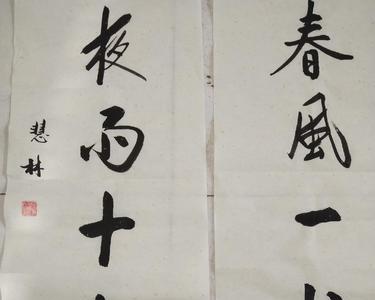 春風一
夜雨十
慧林